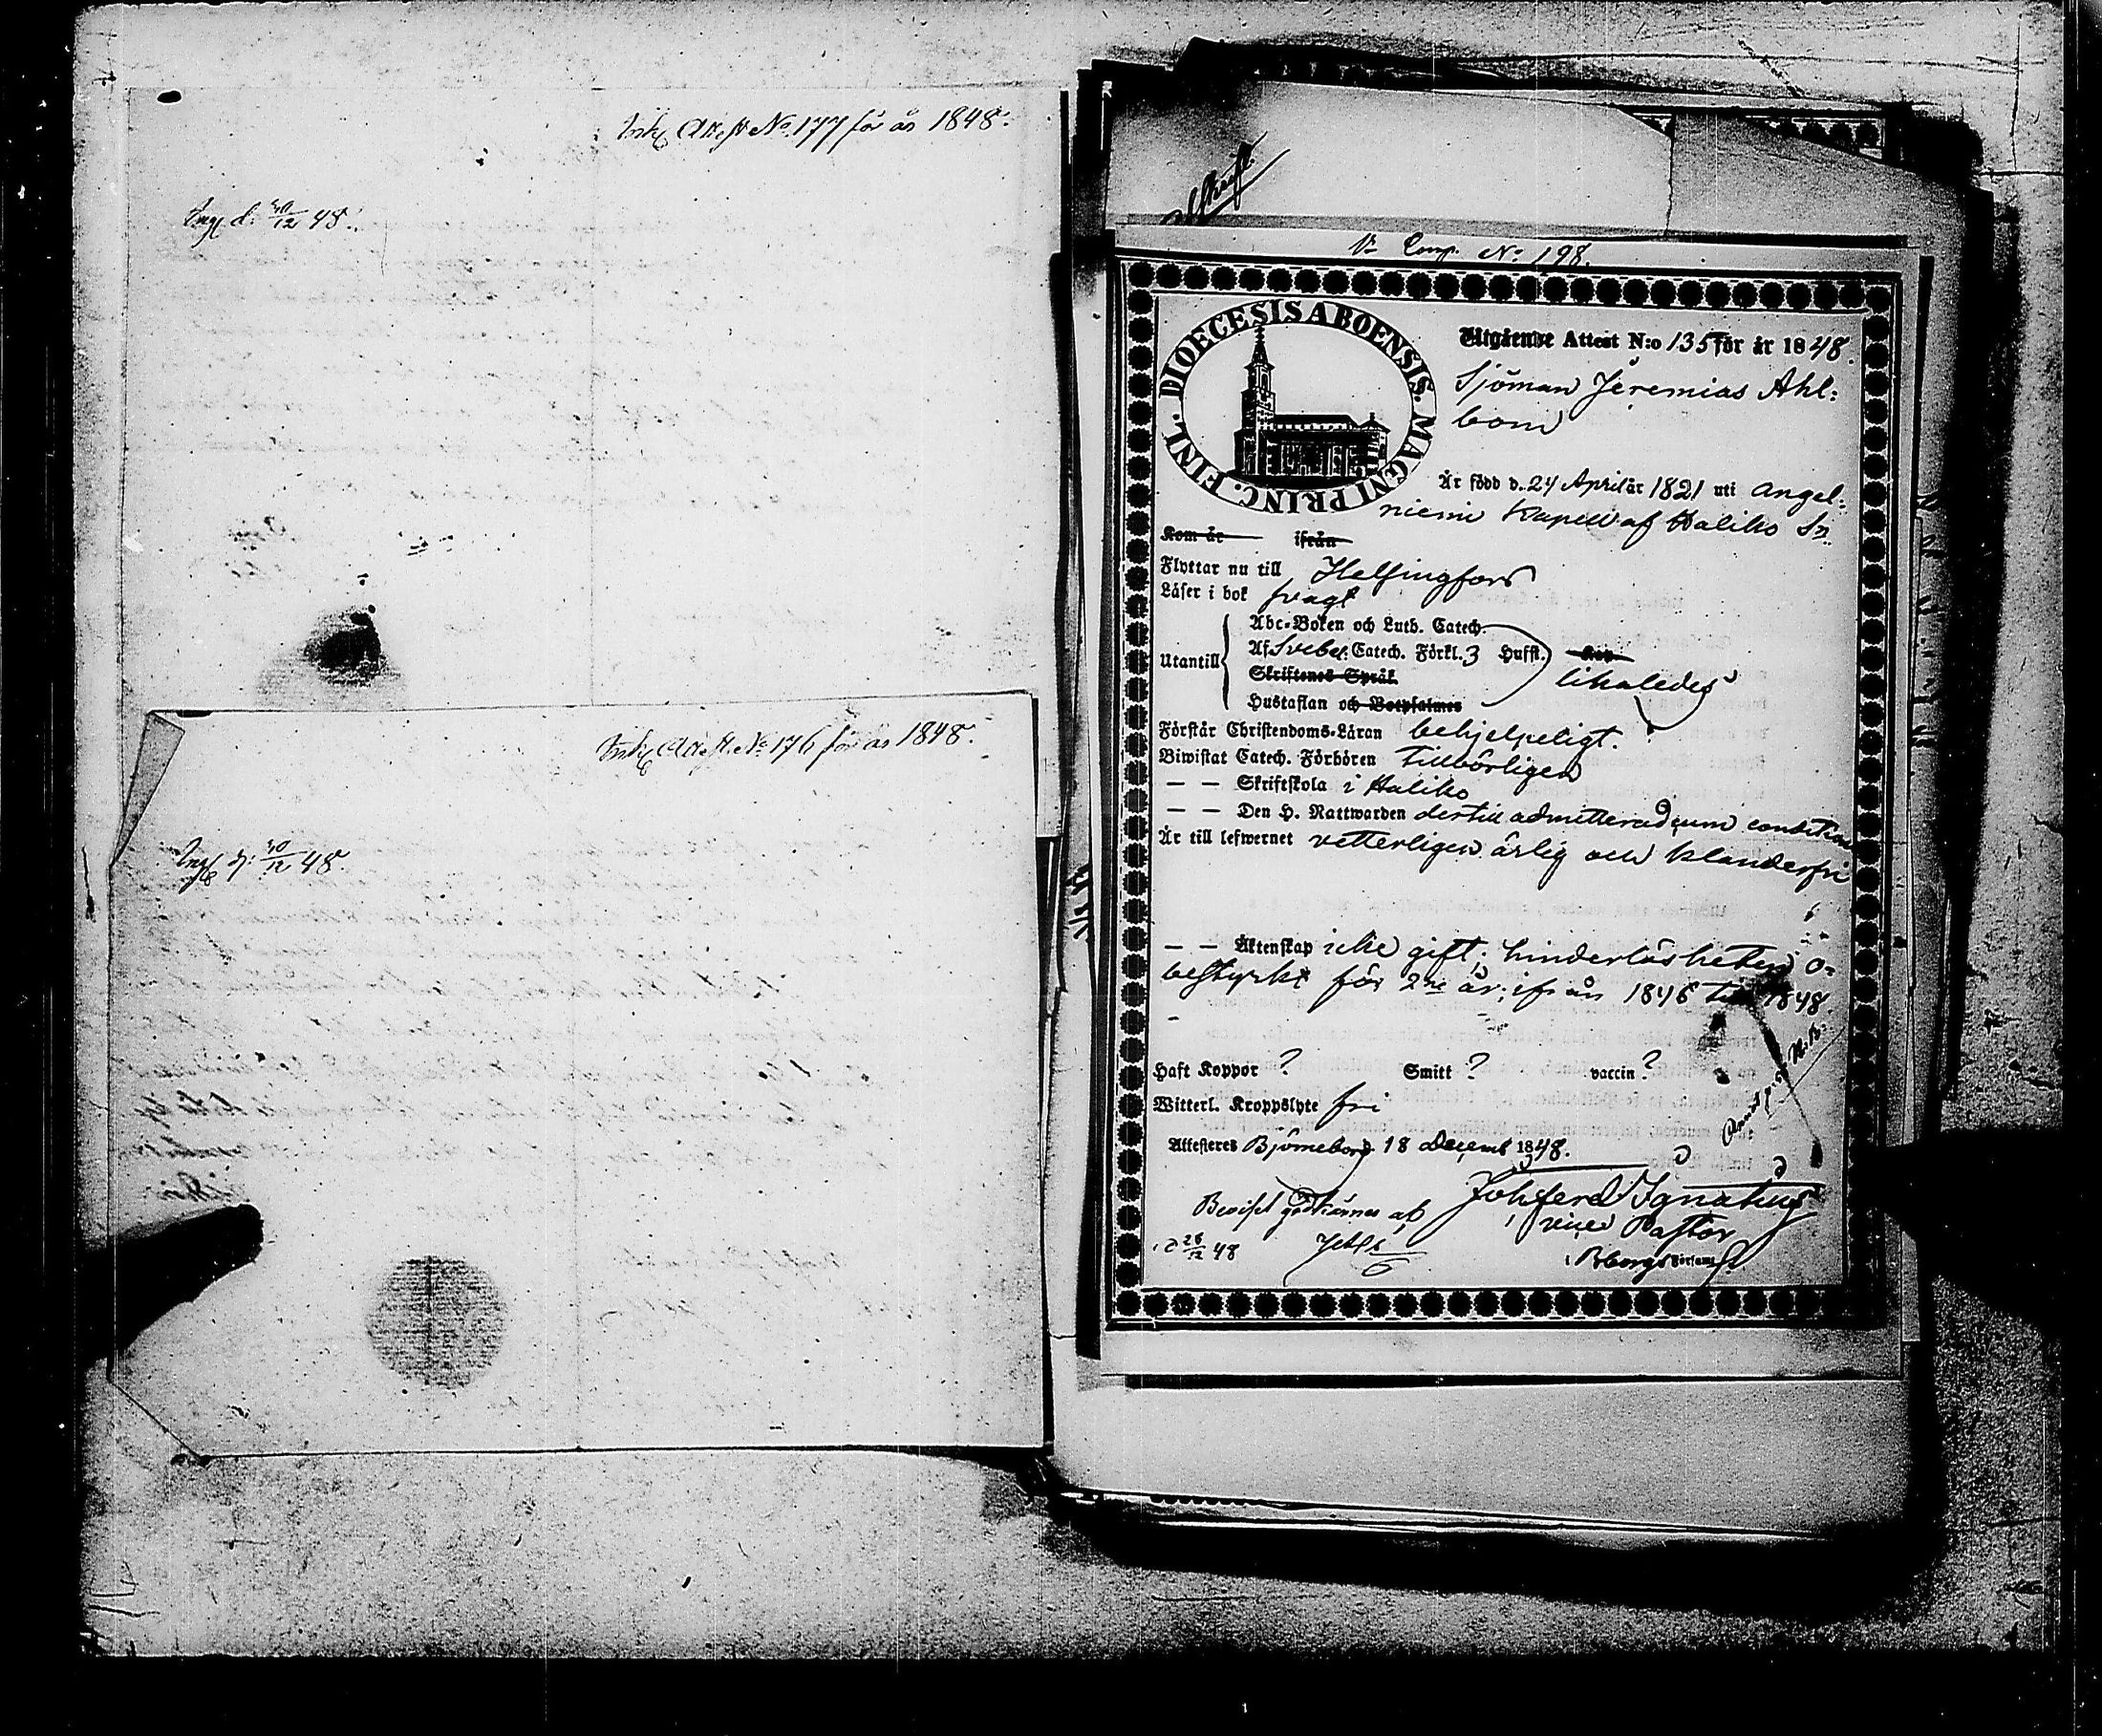 Ink Attest No. 177 för år 1848.
Ingf d: 30/12 48.
Ink Attest. No. 176 för år 1848.
Ingf d: 30/12 48.
No 198.
DIOECESIS ABOENSIS. MAGNI PRINC. FINL.
Utgående Attest N:o 135 för år 1848.
Sjöman Jeremias Ahl:
bom
Är född d. 24 April år 1821 uti Angel:
niemi Kapell af Haliko Sn.
Kom år ifrån
Flyttar nu till Helsingfors
Läser i bok svagt
Utantill
Abc-Boken och Luth. Catech.
Af Svebel: Catech. Förkl. 3 Hufst.
Skriftenes Språk
likaledes
Hustaflan och Botpsalmer
Förstår Christendoms-Läran behjelpeligt.
Biwistat Catech. Förhören Tillbörligen
— — Skriftskola i Haliko
— — Den H. Nattwarden dertill admitterad, cum conditione
Är till lefwernet vetterligen ärlig och klanderfri
— — Äktenskap icke gift; hinderlösheten o=
bestyrkt för 2ne år, ifrån 1846 till 1848.
Haft Koppor ? Smitt ? vaccin ?
Witterl. Kroppslyte fri
Attesteras Björneborg 18 Decemb 1848.
Joh Ferd Ignatius
vice Pastor
i Bborgs Församl.
d 26/12 48